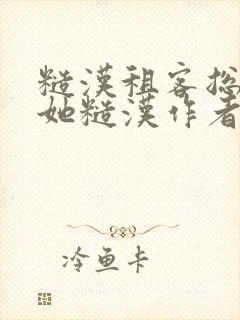 糙漢租客揔
她糙漢作者
冷鱼卡